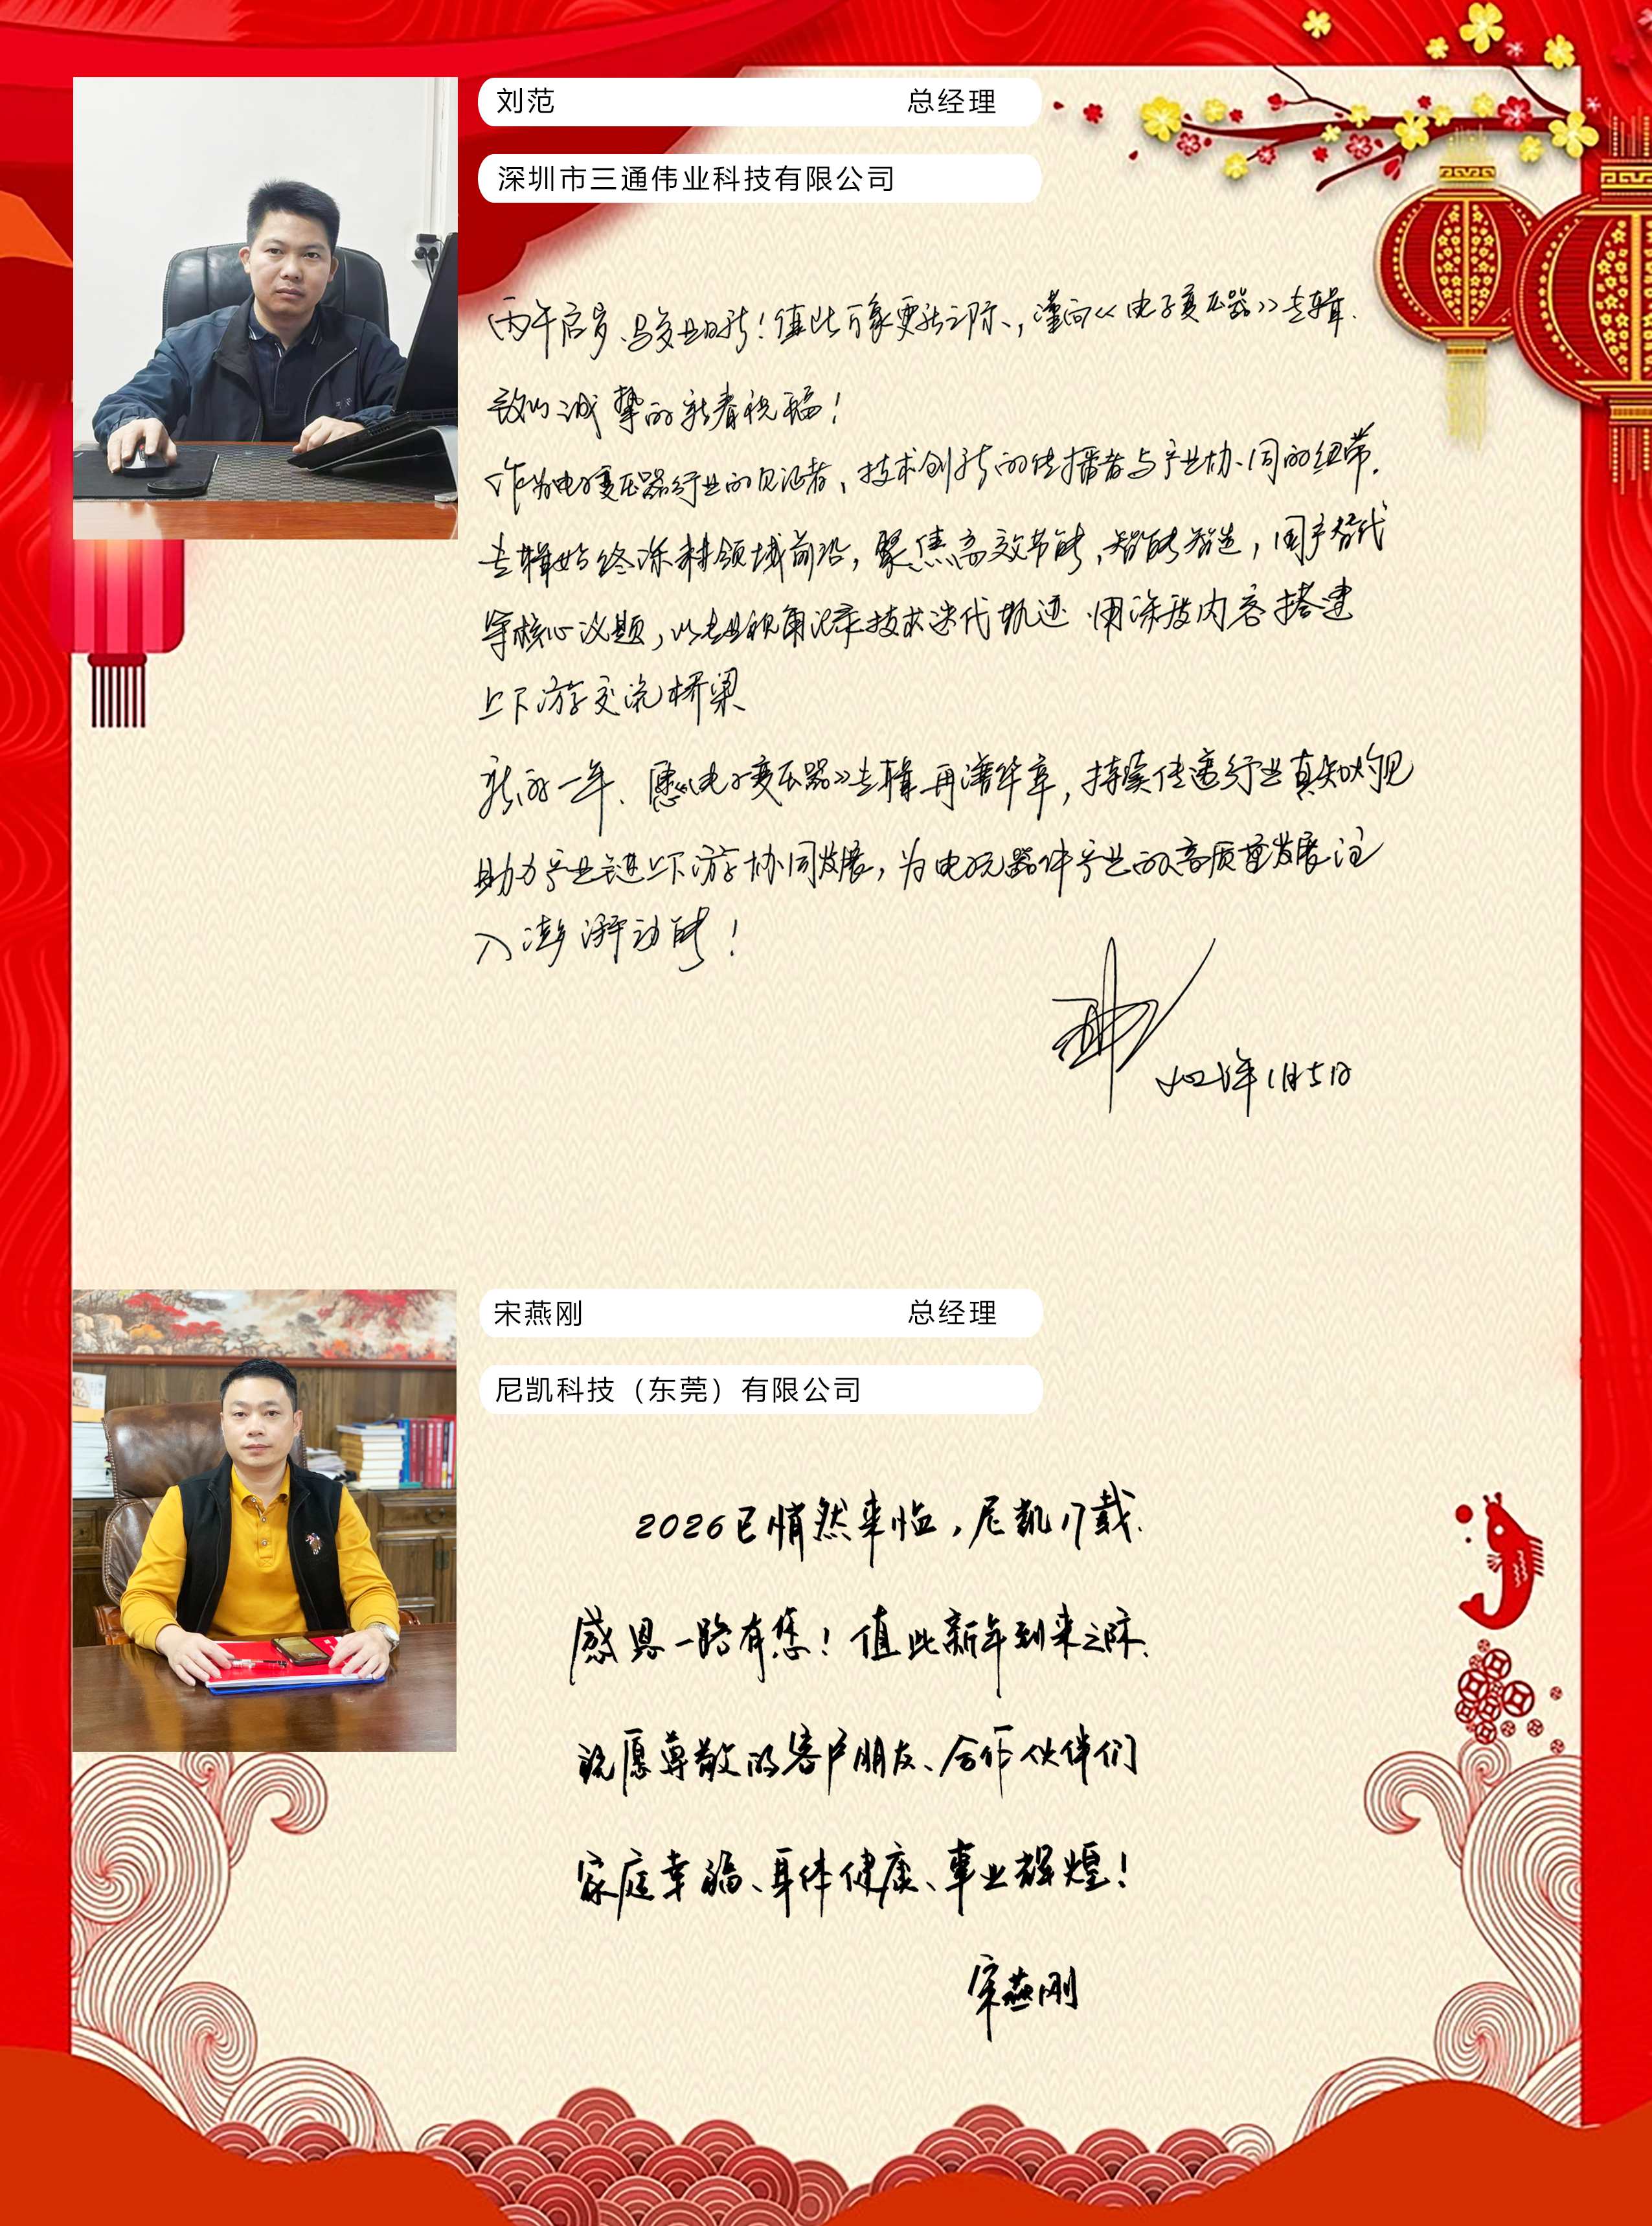 刘范 总经理
深圳市三通伟业科技有限公司
丙午启岁、马多业日新！值此万象更新之际、，谨向《电子变压器》专辑、
致以诚挚的新春祝福！
作为电子变压器行业的见证者、技术创新的传播者与产业协同的纽带，
专辑始终深耕领域前沿，聚焦高效节能，智能智造，国产替代
等核心议题，以专业视角记录技术迭代轨迹 用深度内容搭建
上下游交流桥梁
新的一年、愿《电子变压器》专辑再谱华章，持续传递行业真知灼见
助力产业链上下游协同发展，为电子元器件产业的高质量发展注
入澎湃动能！
1月5日
宋燕刚 总经理
尼凯科技（东莞）有限公司
2026已悄然来临，尼凯17载、
感恩一路有您！值此新年到来之际、
祝愿尊敬的客户朋友、合作伙伴们
家庭幸福、身体健康、事业辉煌！
宋燕刚